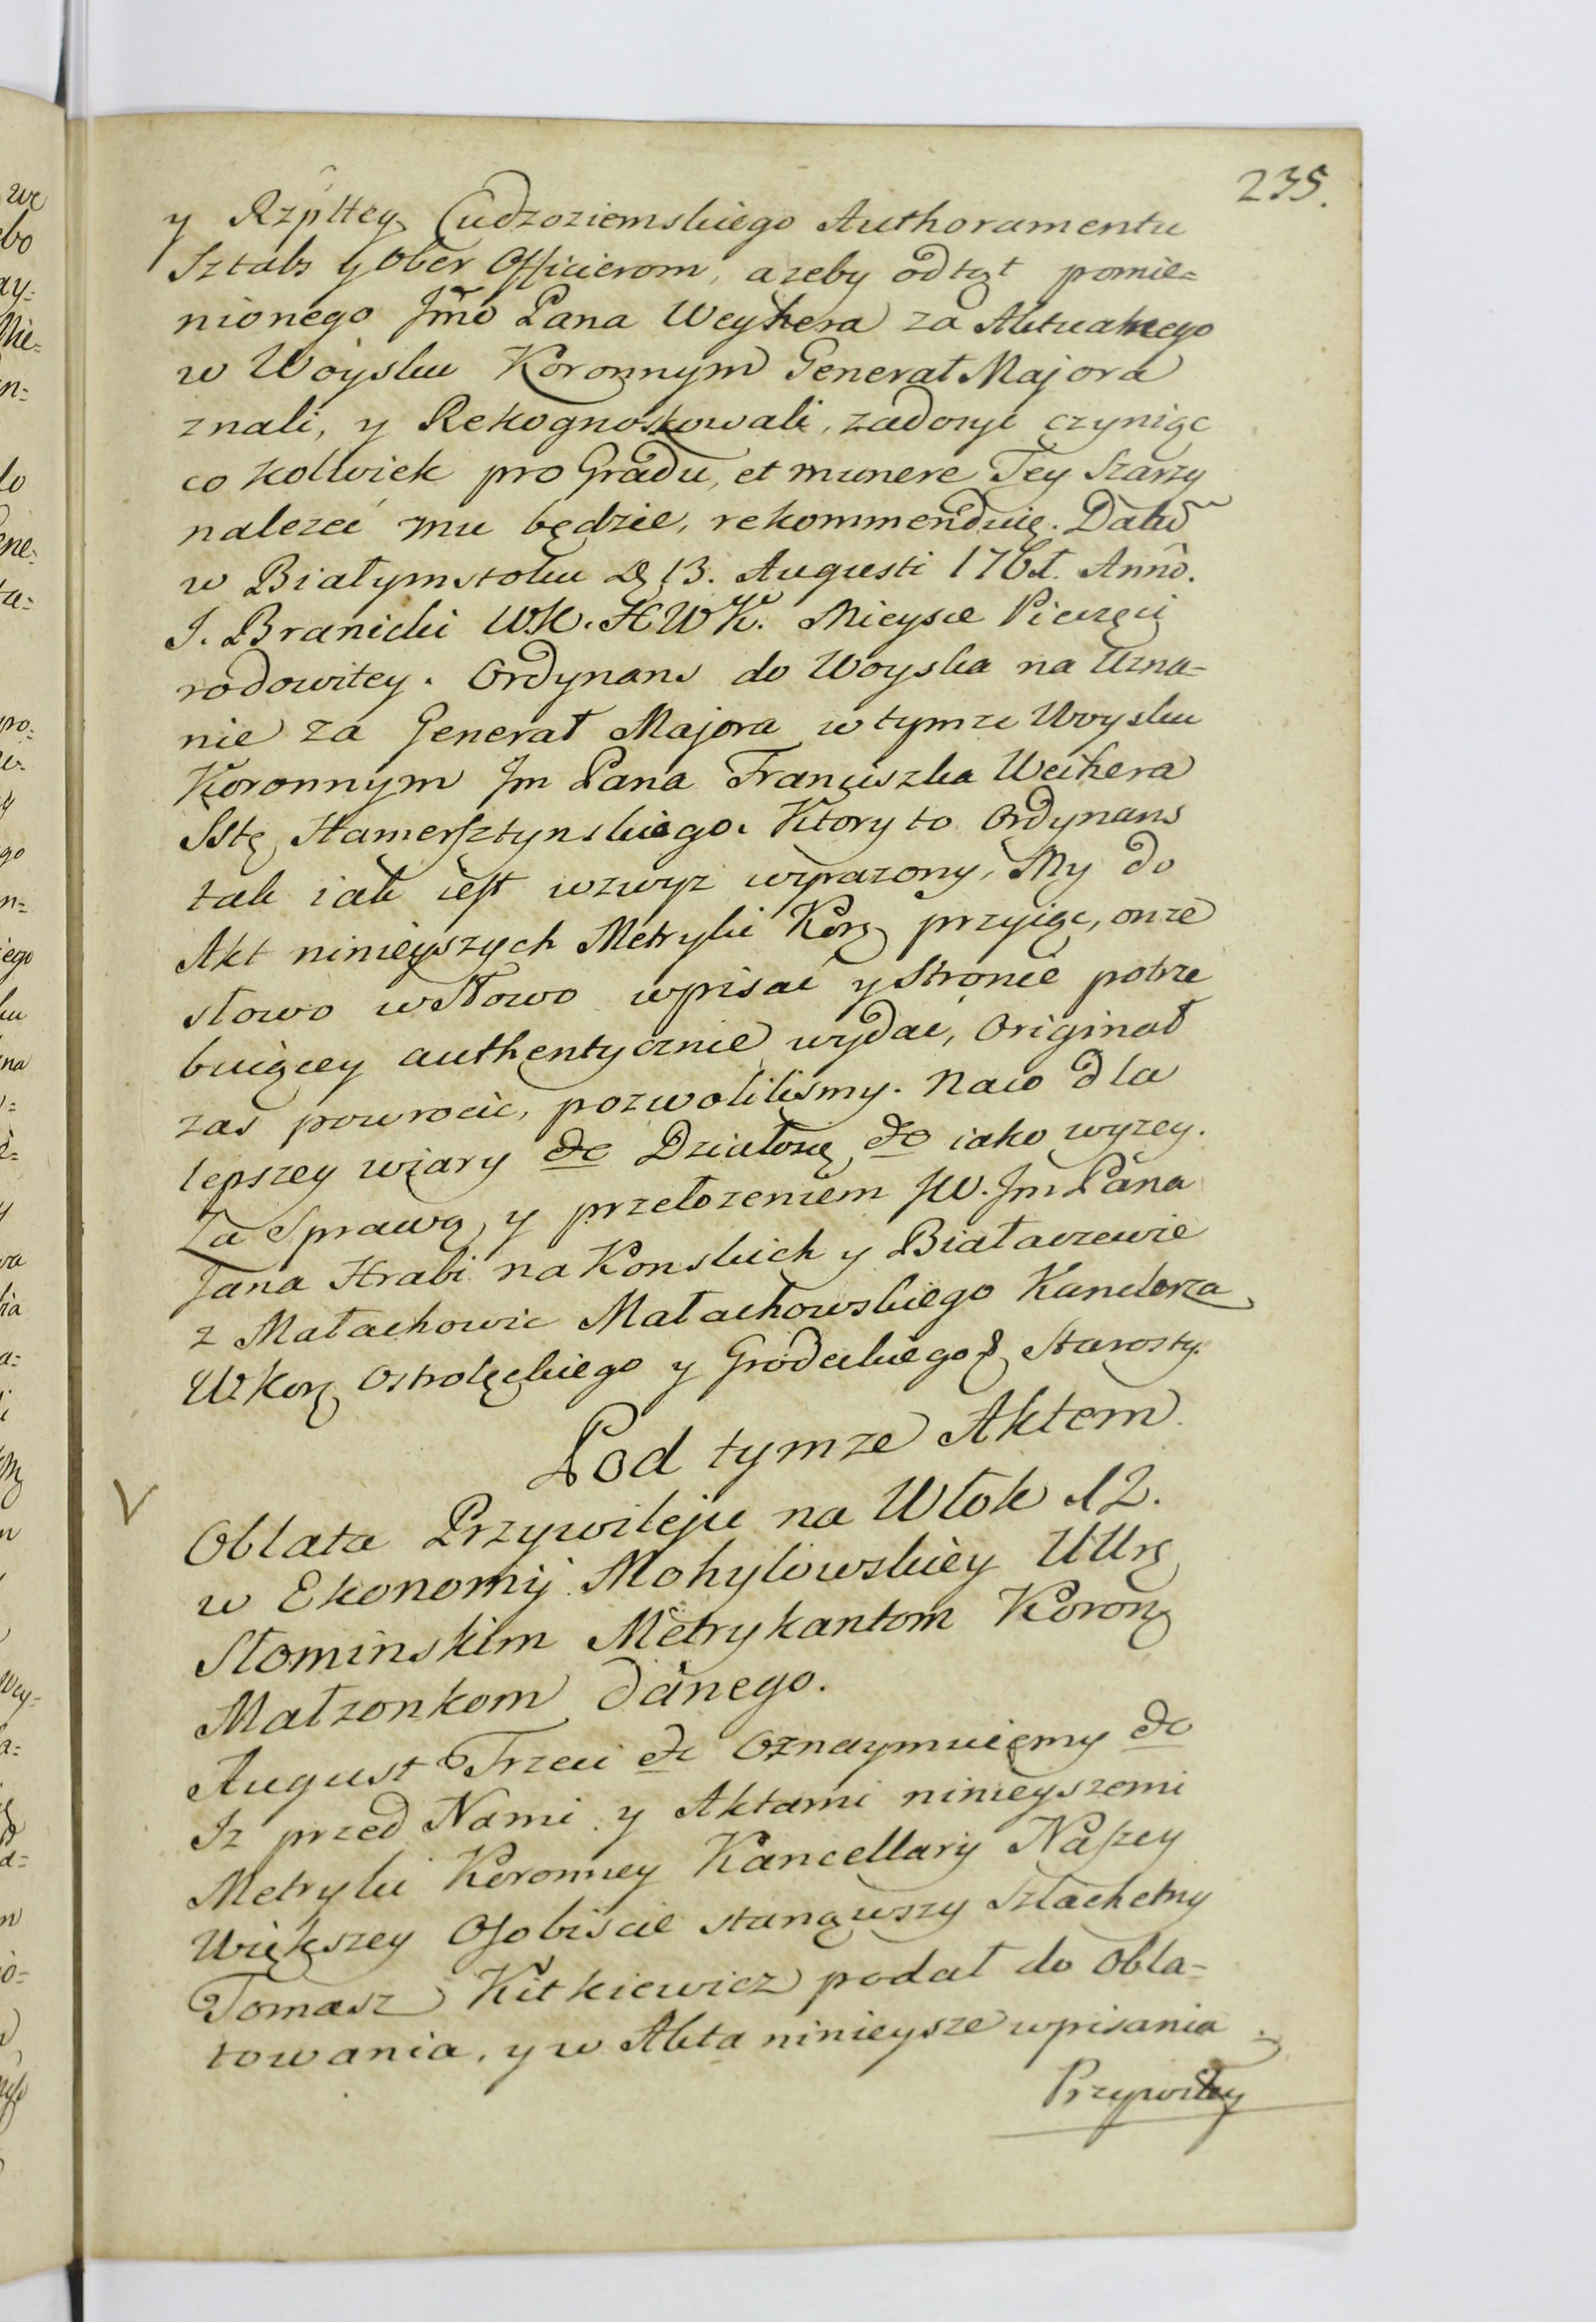 235.
y Rzpltey Cudzoziemskiego Authoramentu
Sztabs y Ober Officierom, azeby odtąt pomie=
nionego Jmo Pana Weyhera za Aktualnego
w Woysku Koronnym Generał Majora
znali, y Rekognoskowali, zadosyć czyniąc
co kolwiek pro Gradu, et munere Tey Szarzy
nalezeć mu będzie, rekommenduię. Datu
w Białymstoku D 13. Augusti 1761. Anno.
J. Branicki W.K.H.W.K. Mieysce Pieczęci
rodowitey. Ordynans do Woyska na Uzna-
nie za Generał Majora w tymze Woysku
Koronnym Jm Pana Franciszka Weihera
Sstę Hamersztynskiego. Ktory to Ordynans
tak iak iest wzwyz wyrazony, My do
Akt ninieyszych Metryki Korą przyiąc, onze
słowo w słowo wpisać y Stronie potrze
buiącey authentycznie wydać, Originał
zas powrocic, pozwolilismy. Naco dla
lepszey wiary &c Działosię &c iako wyzey.
Za Sprawą y przełozeniem JW. Jm Pana
Jana Hrabi na Konskich y Białaczewie
z Małachowic Małachowskiego Kanclerza
W Korą Ostrołęckiego y Grodeckiego & Starosty.
Pod tymze Aktem
V
Oblata Przywileju na Włok 12.
w Ekonomij Mohylowskiey UUrą
Słominskim Metrykantom Korong
Małzonkom danego.
August Trzeci &c Oznaymuięmy &c
Iz przed Nami y Aktami ninieyszemi
Metryki Koronney Kancellary Naszey
Większey Osobiscie stanąwszy Szlachetny
Tomasz Kitkiewicz podał do obla-
towania, y w Akta ninieysze wpisania
Przywiley